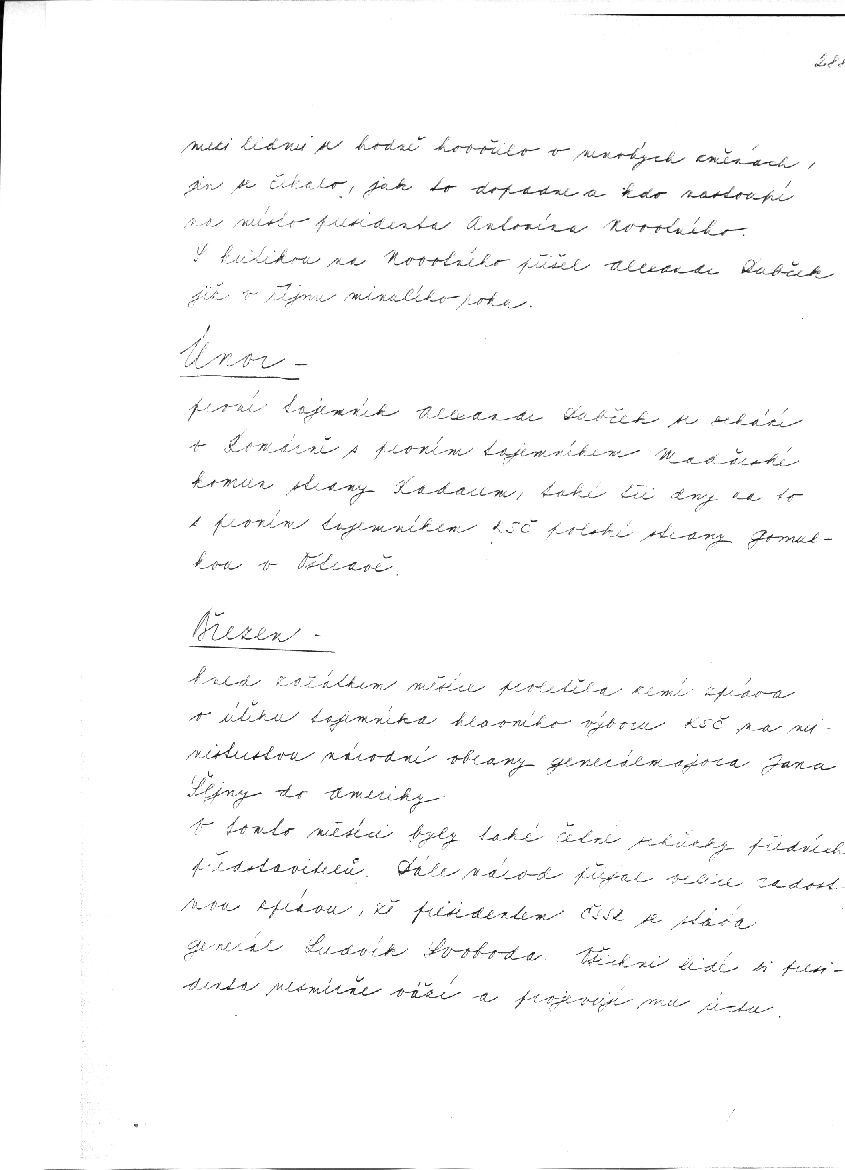 288
mezi lidmi se hodně hovořilo o mnohých změnách,
jen se čekalo, jak to dopadne a kdo nastoupí
na místo presidenta Antonína Novotného.
S kritikou na Novotného přišel Alexandr Dubček
již v říjnu minulého roku.
Únor -
první tajemník Alexandr Dubček se schází
v Komárně s prvním tajemníkem Maďarské
komun strany Kadarem, také tři dny na to
s prvním tajemníkem KSČ polské strany Gomul-
kou v Ostravě.
Březen -
hned začátkem měsíce proletěla zemí zpráva
o útěku tajemníka hlavního výboru KSČ na mi-
nisterstvu národní obrany generálmajora Jana
Šejny do Ameriky.
V tomto měsíci byly také četné schůzky předních
představitelů. Dále národ přijal velice radost-
nou zprávu, že presidentem ČSSR se stává
generál Ludvík Svoboda. Všichni lidé si presi-
denta nesmírně váží a projevují mu úctu.